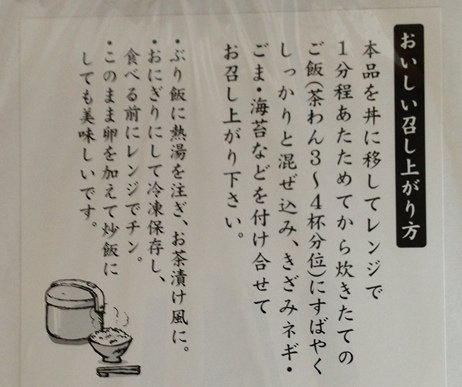 おいしい召し上がり方
本品を丼に移してレンジで
1分程あたためてから炊きたての
ご飯(茶わん3〜4杯分位)にすばやく
しっかりと混ぜ込み、きざみネギ・
ごま・海苔などを付け合せて
お召し上がり下さい。
・ぶり飯に熱湯を注ぎ、お茶漬け風に。
・おにぎりにして冷凍保存し、
食べる前にレンジでチン。
・このまま卵を加えて炒飯に
しても美味しいです。